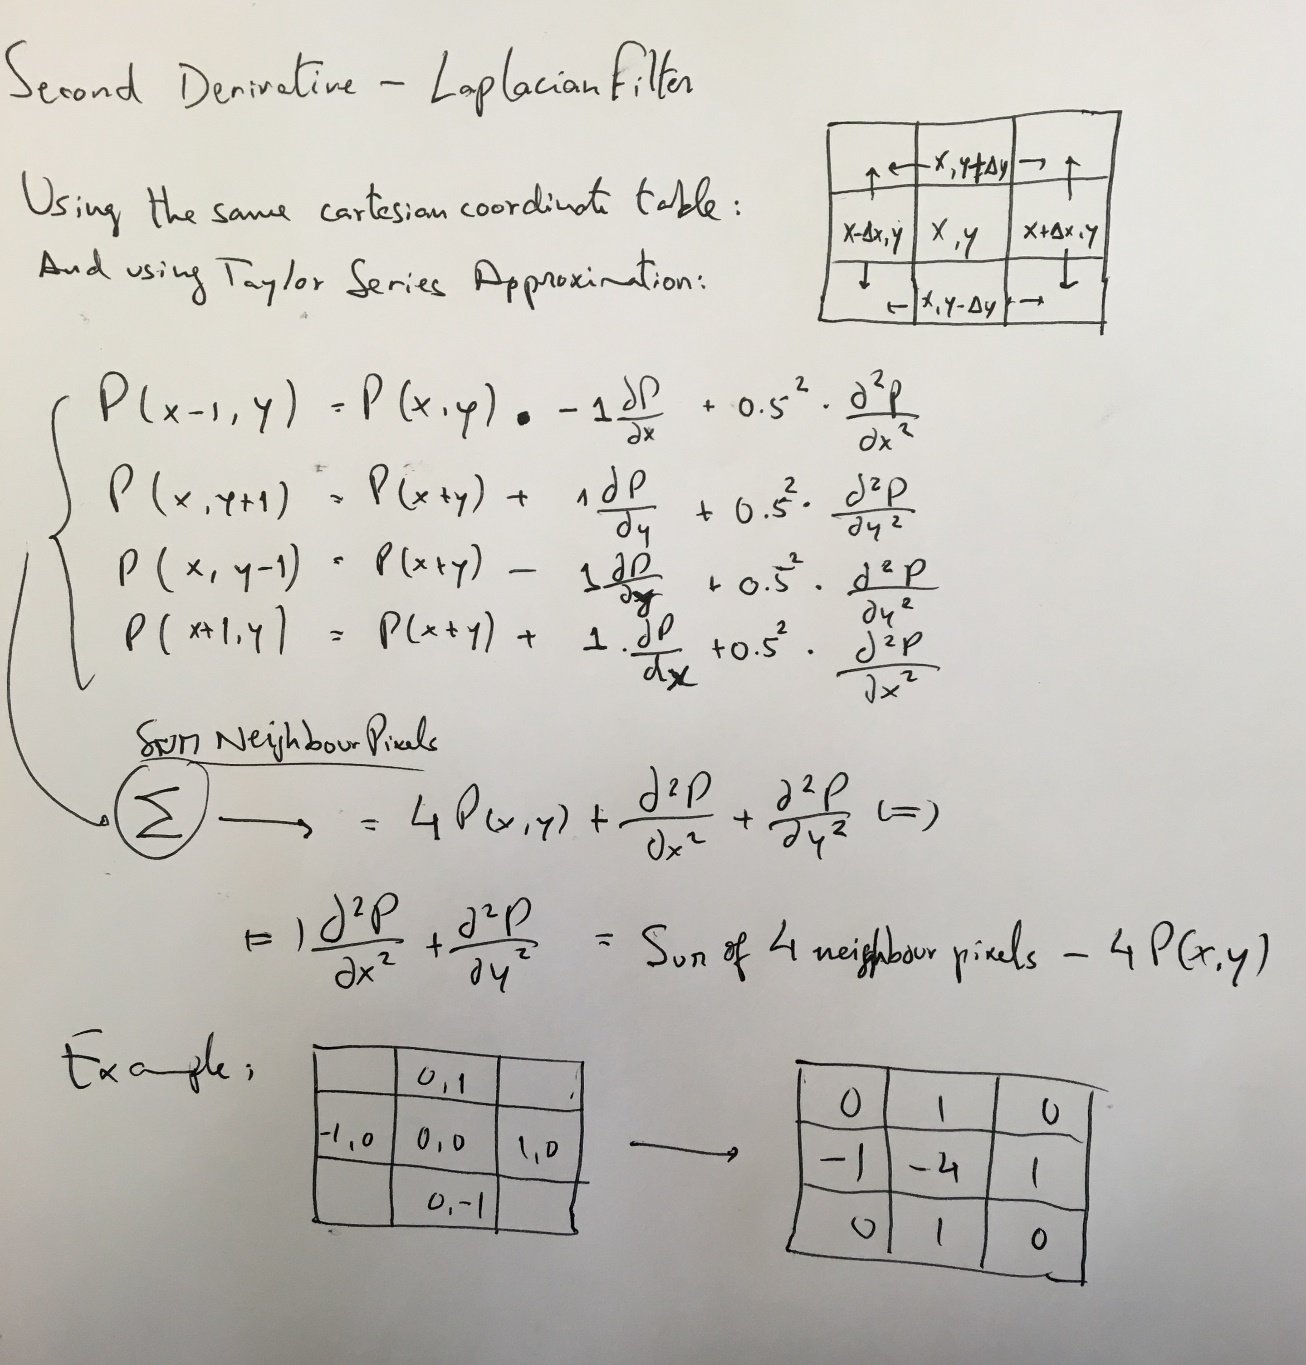 Second Derivative - Laplacian Filter
Using the same cartesian coordinate table:
And using Taylor Series Approximation:
← x, y+Δy →
x-Δx, y x, y x+Δx, y
← x, y-Δy →
P(x-1, y) = P(x, y) • - 1 ∂P/∂x + 0.5² · ∂²P/∂x²
P(x, y+1) = P(x+y) + 1 ∂P/∂y + 0.5² · ∂²P/∂y²
P(x, y-1) = P(x+y) - 1 ∂P/∂y + 0.5² · ∂²P/∂y²
P(x+1, y) = P(x+y) + 1 · ∂P/∂x + 0.5² · ∂²P/∂x²
Sum Neighbour Pixels
Σ → = 4 P(x, y) + ∂²P/∂x² + ∂²P/∂y² (=)
(=) ∂²P/∂x² + ∂²P/∂y² = Sum of 4 neighbour pixels - 4 P(x, y)
Example:
0,1
-1,0 0,0 1,0
0,-1
→
0 1 0
-1 -4 1
0 1 0